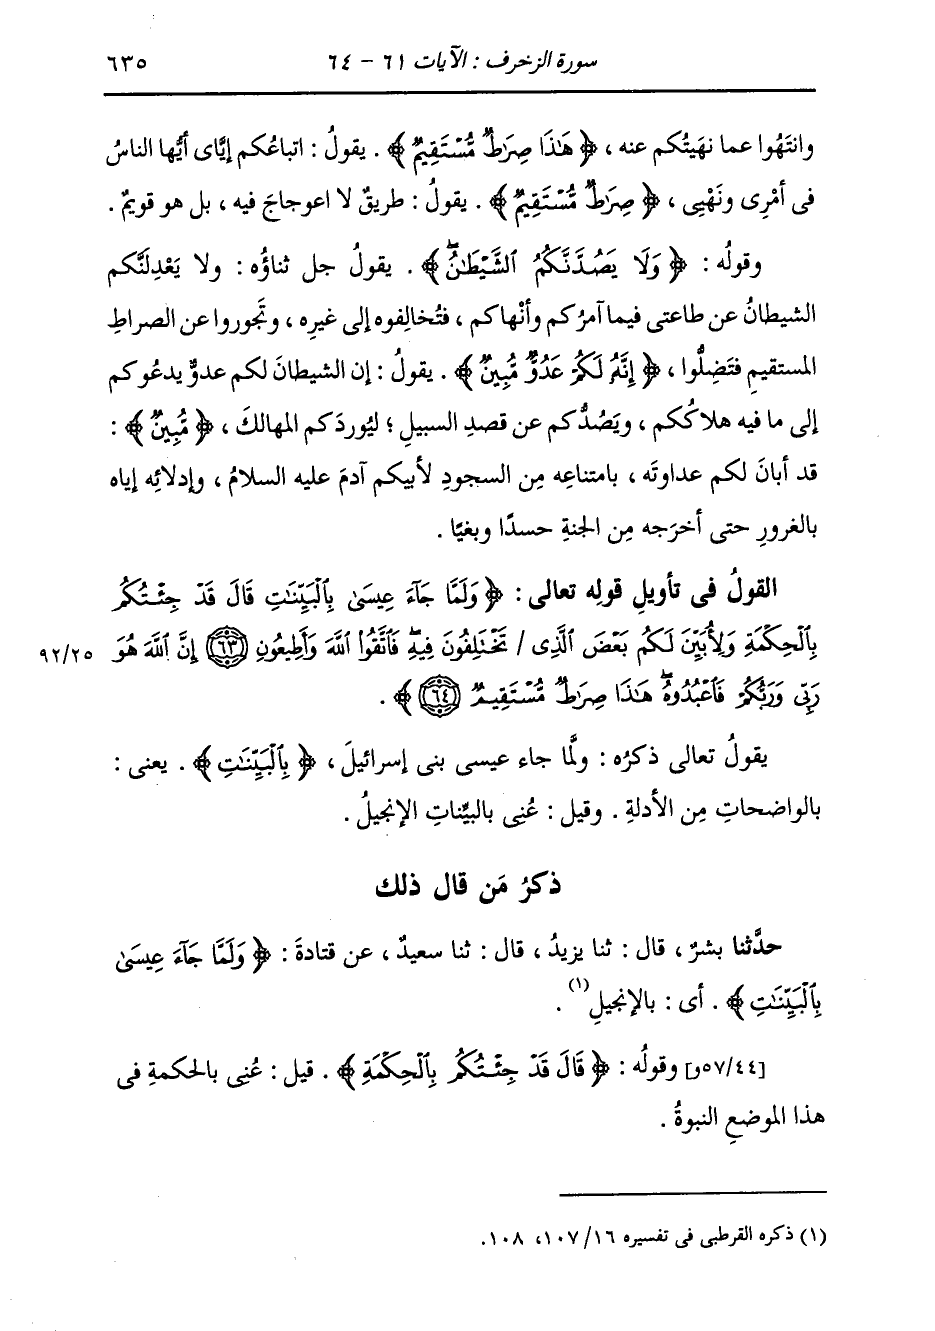 سورة الزخرف : الآيات ٦١ - ٦٤
٦٣٥
وانتَهُوا عما نهَيتُكم عنه ، ﴿ هَٰذَا صِرَٰطٌ مُّسْتَقِيمٌ ﴾ . يقولُ : اتباعُكم إيَّاى أيُّها الناسُ
فى أمْرِى ونَهْيِى ، ﴿ صِرَٰطٌ مُّسْتَقِيمٌ ﴾ . يقولُ : طريقٌ لا اعوجاجَ فيه ، بل هو قويمٌ .
وقولُه : ﴿ وَلَا يَصُدَّنَّكُمُ ٱلشَّيْطَٰنُۖ ﴾ . يقولُ جل ثناؤُه : ولا يَعْدِلَنَّكم
الشيطانُ عن طاعتى فيما آمرُكم وأنْهاكم ، فتُخالِفوه إلى غيرِه ، وتَجوروا عن الصراطِ
المستقيمِ فتَضِلُّوا ، ﴿ إِنَّهُۥ لَكُمْ عَدُوٌّ مُّبِينٌ ﴾ . يقولُ : إن الشيطانَ لكم عدوٌّ يدعُوكم
إلى ما فيه هلاكُكم ، ويَصُدُّكم عن قصدِ السبيلِ ؛ ليُوردَكم المهالكَ ، ﴿ مُّبِينٌ ﴾ :
قد أبانَ لكم عداوتَه ، بامتناعِه مِن السجودِ لأبيكم آدمَ عليه السلامُ ، وإدلائِه إياه
بالغرورِ حتى أخرَجه مِن الجنةِ حسدًا وبغيًا .
القولُ فى تأويلِ قولِه تعالى : ﴿ وَلَمَّا جَآءَ عِيسَىٰ بِٱلْبَيِّنَٰتِ قَالَ قَدْ جِئْتُكُم
بِٱلْحِكْمَةِ وَلِأُبَيِّنَ لَكُم بَعْضَ ٱلَّذِى / تَخْتَلِفُونَ فِيهِۖ فَٱتَّقُوا۟ ٱللَّهَ وَأَطِيعُونِ ٦٣ إِنَّ ٱللَّهَ هُوَ
٩٢/٢٥
رَبِّى وَرَبُّكُمْ فَٱعْبُدُوهُۖ هَٰذَا صِرَٰطٌ مُّسْتَقِيمٌ ٦٤ ﴾ .
يقولُ تعالى ذكرُه : ولمَّا جاء عيسى بنى إسرائيلَ ، ﴿ بِٱلْبَيِّنَٰتِ ﴾ . يعنى :
بالواضحاتِ مِن الأدلةِ . وقيل : عُنِى بالبيِّناتِ الإنجيلُ .
ذكرُ مَن قال ذلك
حدَّثنا بشرٌ ، قال : ثنا يزيدُ ، قال : ثنا سعيدٌ ، عن قتادةَ : ﴿ وَلَمَّا جَآءَ عِيسَىٰ
بِٱلْبَيِّنَٰتِ ﴾ . أى : بالإنجيلِ (١) .
[٥٧/٤٤و] وقولُه : ﴿ قَالَ قَدْ جِئْتُكُم بِٱلْحِكْمَةِ ﴾ . قيل : عُنِى بالحكمةِ فى
هذا الموضعِ النبوةُ .
(١) ذكره القرطبى فى تفسيره ١٦/ ١٠٧، ١٠٨.